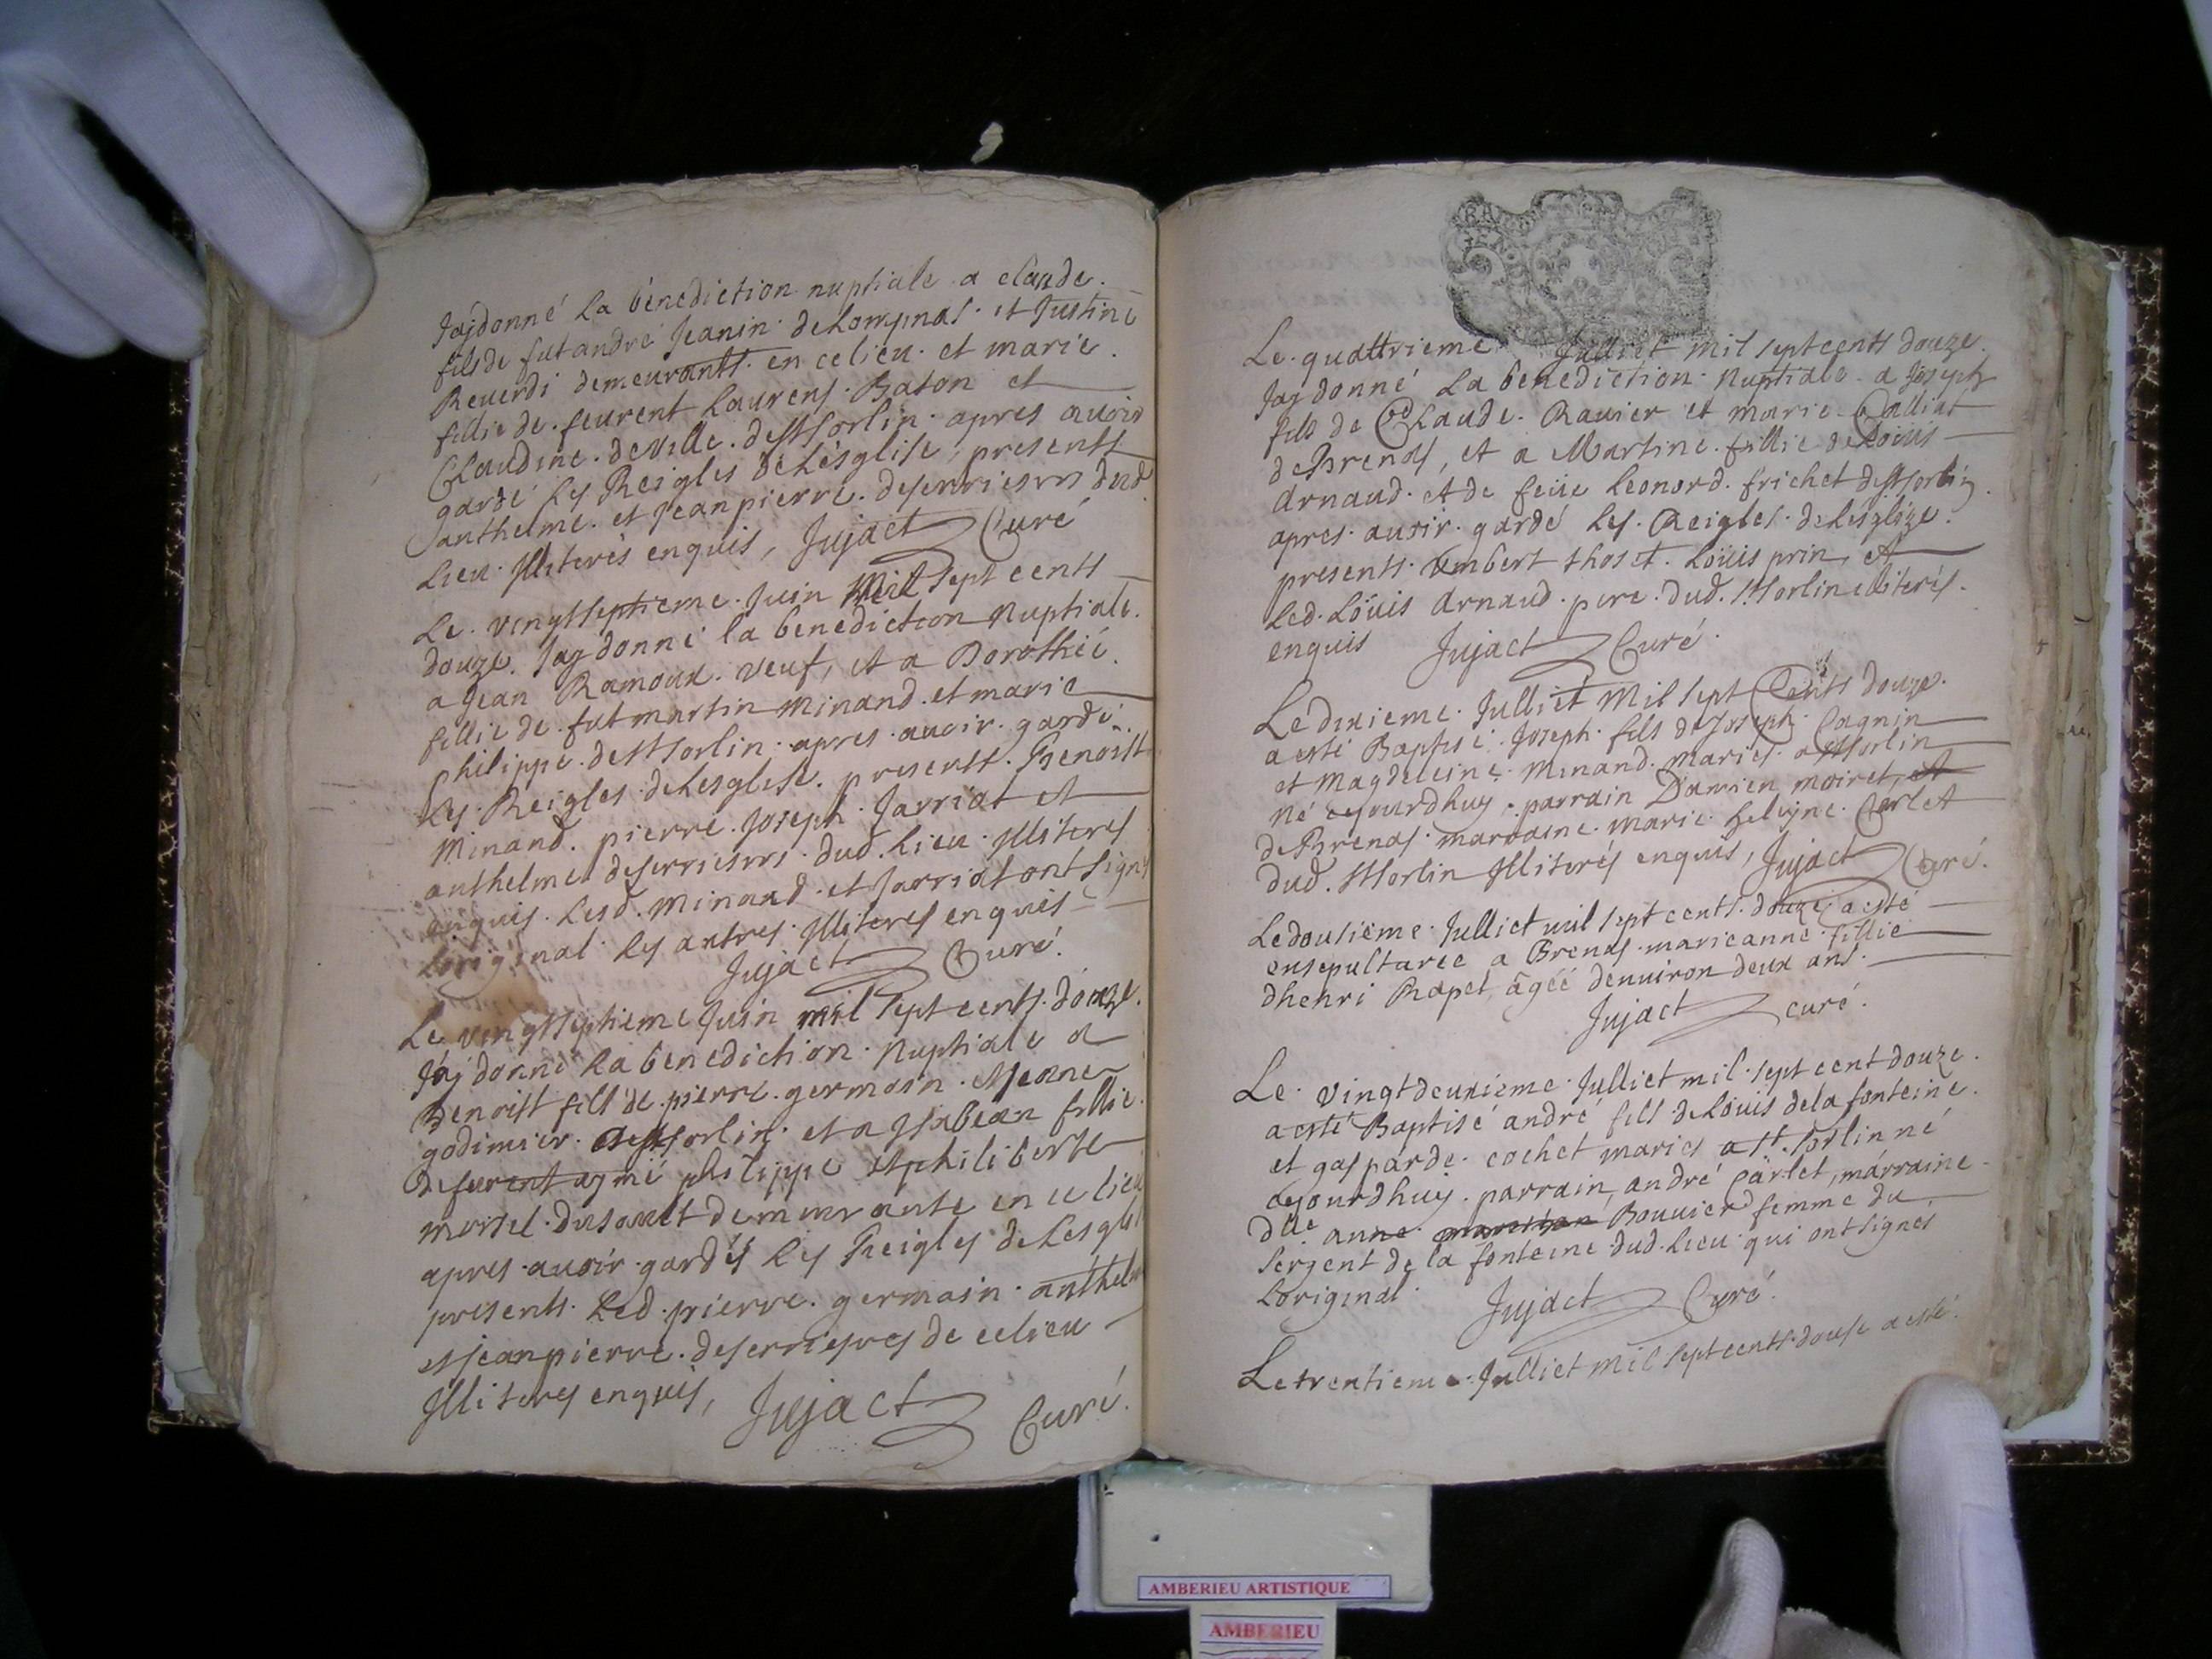 Jaÿ donné la bénediction nuptiale a claude.
fils de fut andré Jeanin de Lompnas. et Justine
Reuerdi demeurants. en ce lieu. et marie.
fillie de. feurent Laurens. Baton et
Claudine. deville. de St Sorlin. apres avoir
gardé les Reigles de Lésglise, presents
anthelme. et Jean pierre. deserriesres dud.
Lieu. Illiterés enquis, Jujact Curé
Le. vingtseptieme. Juin Mil sept cents
douze. Jay donné la benediction Nuptiale.
a Jean Ramoux. veuf, et a Dorothée.
fillie de. fut martin minand. et marie
philippe. de St Sorlin. apres. avoir. gardé.
les. Reigles. de Lesglise. presents. Benoist
Minand. pierre. Joseph. Jarriat et
anthelme deserriesres. dud. Lieu. Illiteres
enquis. Lesd. Minand. et Jarriat ont signé
Loriginal. les autres. Illiteres enquis
Jujact Curé.
Le vingtseptieme Juin mil sept cents. douze.
Jaÿ donné la benediction. nuptiale a
Benoist fils de. pierre. germain. et Jeanne
godimier. de St Sorlin. et a Isabeau fillie.
de feurent aymé philippe et philiberte
morel. dusault demeurante en ce lieu
apres. auoir. gardés les Reigles de Lesgli
presents. Led. pierre. germain. anthel
et Jean pierre. deserriesres de ce lieu
Illiteres enquis, Jujact Curé.
Le. quattrieme. Julliet mil sept cents douze.
Jay donné La benediction. Nuptiale. a Joseph
fils de Claude. Rauier et marie. Calliat
de Brenas, et a Martine. fillie de Loüis
Arnaud. et de feüe Leonord. frichet de St Sorlin.
apres. auoir. gardé Les. Reigles. de Lésglize.
presents. Umbert thoset. Loüis prin, et
Led. Loüis Arnaud. pere. dud. St Sorlin illiterés.
enquis Jujact Curé.
Le dixieme. Julliet Mil sept Cents douze.
a esté Baptisé. Joseph. fils de Joseph. Cagnin
et Magdeleine. Minand. mariés. a St Sorlin
Né ce jourdhuy. parrain Damien moiret, et
de Brenas. marraine. marie. helvine. Carlet
dud. St Sorlin Illiterés enquis, Jujact Curé.
Le dousieme. Julliet mil sept cents. douze. a esté
ensepulturée a Brenas. marieanne. fillie
dhenri Rapet âgéé denuiron deux ans.
Jujact curé.
Le. vingtdeuxieme. Julliet mil. sept cent douze.
a esté Baptisé andré fils de Loüis dela fonteine.
et gasparde. cochet mariés a St. Sorlin né
ce jourdhuy. parrain, andré Carlet, marraine
dlle anne. Bouuier femme du
sergent de la fonteine dud. Lieu. qui ont signés
Loriginal. Jujact Curé.
Le trentieme. Julliet mil sept cents. douse a esté.
AMBERIEU ARTISTIQUE
AMBERIEU